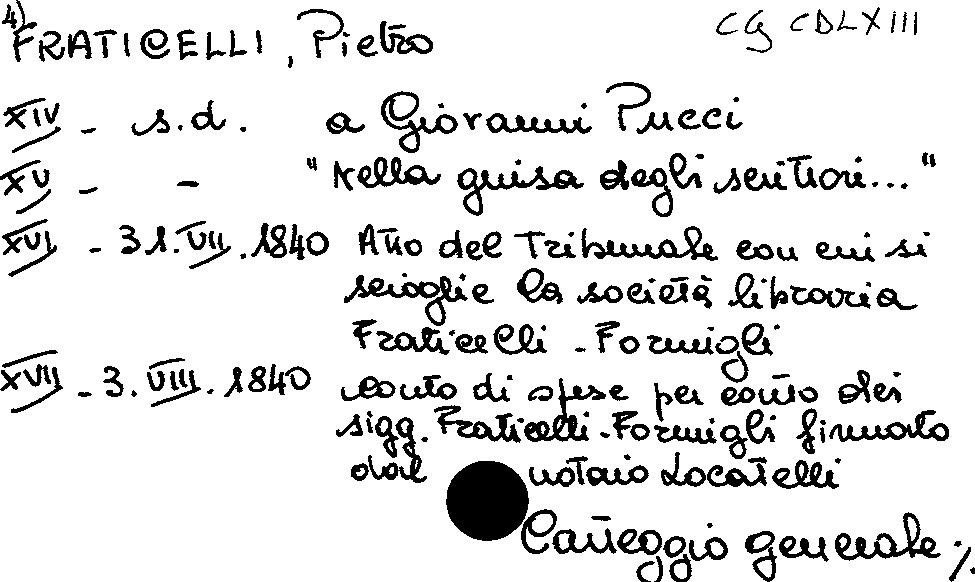 4)
FRATICELLI, Pietro CG CDLXIII
XIV - s.d. a Giovanni Pucci
XV - - "Nella guisa degli scrittori..."
XVI - 31.VII.1840 Atto del Tribunale con cui si
scioglie la società libraria
Fraticelli - Formigli
XVII - 3.VIII.1840 conto di spese per conto dei
sigg. Fraticelli-Formigli firmato
dal notaio Locatelli
Carteggio generale ./.